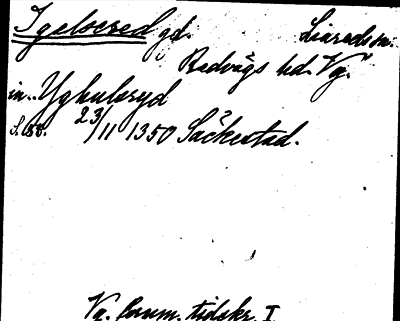 Igelsered gd. Liareds sn.
Redvägs hd. Vg.
in.. Yghulsryd
S. 188. 23/11 1350 Säckestad.
Vg. fornm. tidskr. I